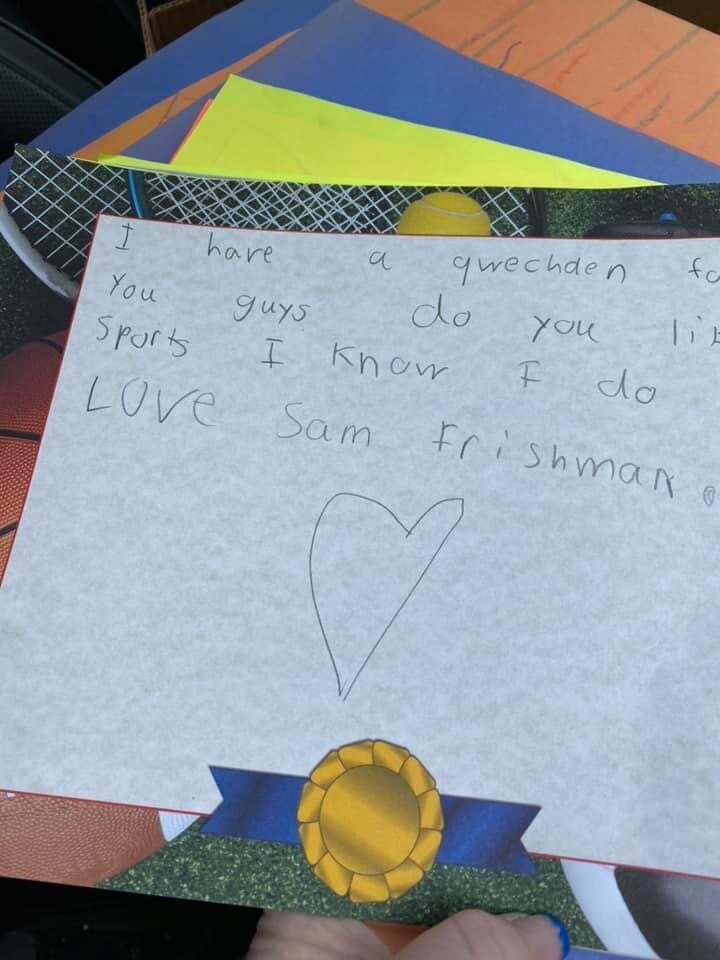 I have a qwechden fo
You guys do you lik
Sports I know I do
Love Sam Frishman.